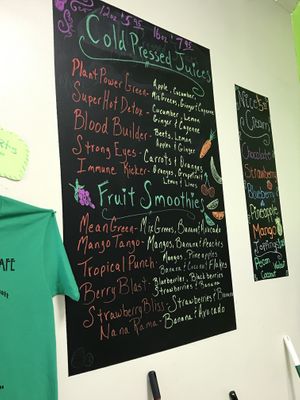 12oz $5.95 16oz $7.95
Cold Pressed Juices
Plant Power Green - Apple, Cucumber,
Mix Greens, Ginger & Cayenne
Super Hot Detox - Cucumber, Lemon
Ginger & Cayenne
Blood Builder - Beets, Lemon,
Apples & Ginger
Strong Eyes - Carrots & Oranges
Immune Kicker - Oranges, Grapefruit
Lemon & Limes
Fruit Smoothies
Mean Green - Mix Greens, Banana & Avocado
Mango Tango - Mangos, Banana & Peaches
Tropical Punch - Mangos, Pineapples
Banana & Coconut Flakes
Berry Blast - Blueberries, Blackberries
Strawberries & Banana
Strawberry Bliss - Strawberries & Banana
Nana Rama - Banana & Avocado
Nice
Creams
Chocolate
Strawberry
Blueberry
Pineapple
Mango
Toppings
Pecan Walnut
Coconut
AFE